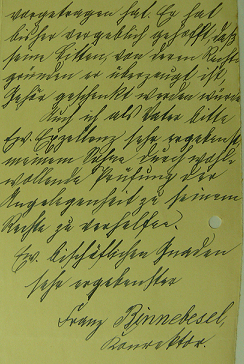 vorgetragen hat. Er hat
bisher vergeblich gehofft, daß
seine Bitten, von deren Rechts-
gründen er überzeugt ist,
Gehör geschenkt werden würde.
Auch ich als Vater bitte
Ew. Exzellenz sehr ergebenst
meinem Sohne durch wohl-
wollende Prüfung der
Angelegenheit zu seinem
Rechte zu verhelfen.
Ew. Bischöflichen Gnaden
sehr ergebenster
Franz Binnebesel,
Konrektor.